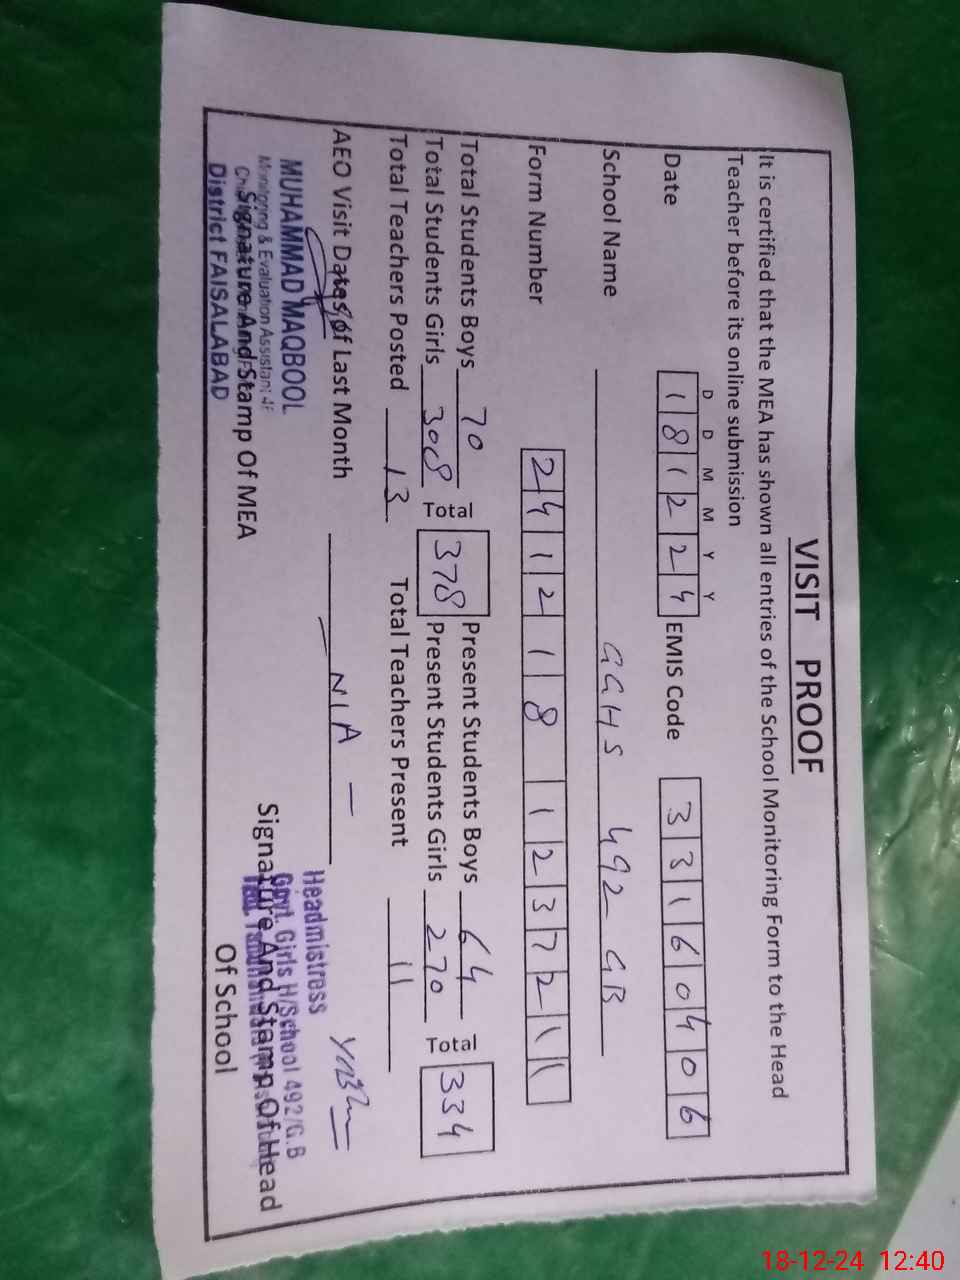 VISIT PROOF
It is certified that the MEA has shown all entries of the School Monitoring Form to the Head
Teacher before its online submission
D D M M Y Y
Date 1 8 1 2 2 4 EMIS Code 3 3 1 6 0 4 0 6
School Name GGHS 492 GB
Form Number 2 4 1 2 1 8 1 2 3 7 2 1 1
Total Students Boys 70 Present Students Boys 64
Total 378 Total 334
Total Students Girls 308 Present Students Girls 270
Total Teachers Posted 13 Total Teachers Present 11
AEO Visit Dates of Last Month — N/A —
MUHAMMAD MAQBOOL
Monitoring & Evaluation Assistant
Signature And Stamp Of MEA
District FAISALABAD
Headmistress
Govt. Girls H/School 492/G.B
Signature And Stamp Of Head
Of School
18-12-24 12:40